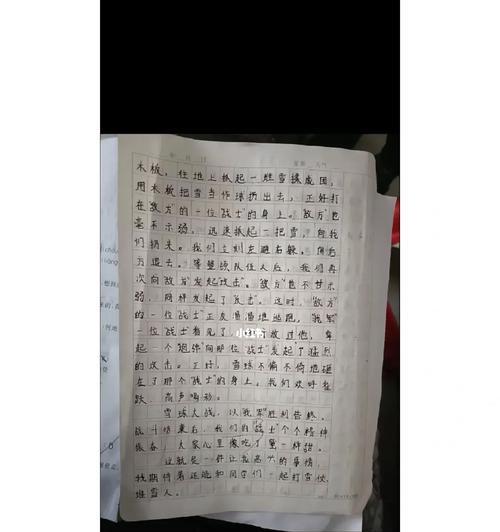 年 月 日 星期 天气
木板，往地上抓起一堆雪揉成团，
用木板把雪当作球扔出去，正好打
在“敌方”的一位“战士”的身上。“敌方”也
毫不示弱，迅速抓起一把雪，向我
们扔来。我们立刻左避右躲，向后
方退去。等整顿队伍人后，我们再
次向“敌方”发起“攻击”。“敌方”也不甘示
弱，同样发起了“反击”。这时，“敌方”
的一位“战士”正反
一位“战士”看见了 放过他，拿
起一个“炮弹”向那位“战士”发起了猛烈
的攻击。正好，雪球不偏不倚地砸
在了那个“战士”的身上。我们欢呼雀
跃，高声喝彩。
雪球大战，以“我军”胜利告终。
战斗结束后，我们的“战士”个个精神
振奋，大家心里像吃了蜜一样甜。
这就是一件让我高兴的事情，
我期待着还能和同学们一起打雪仗，
堆雪人。
小红书